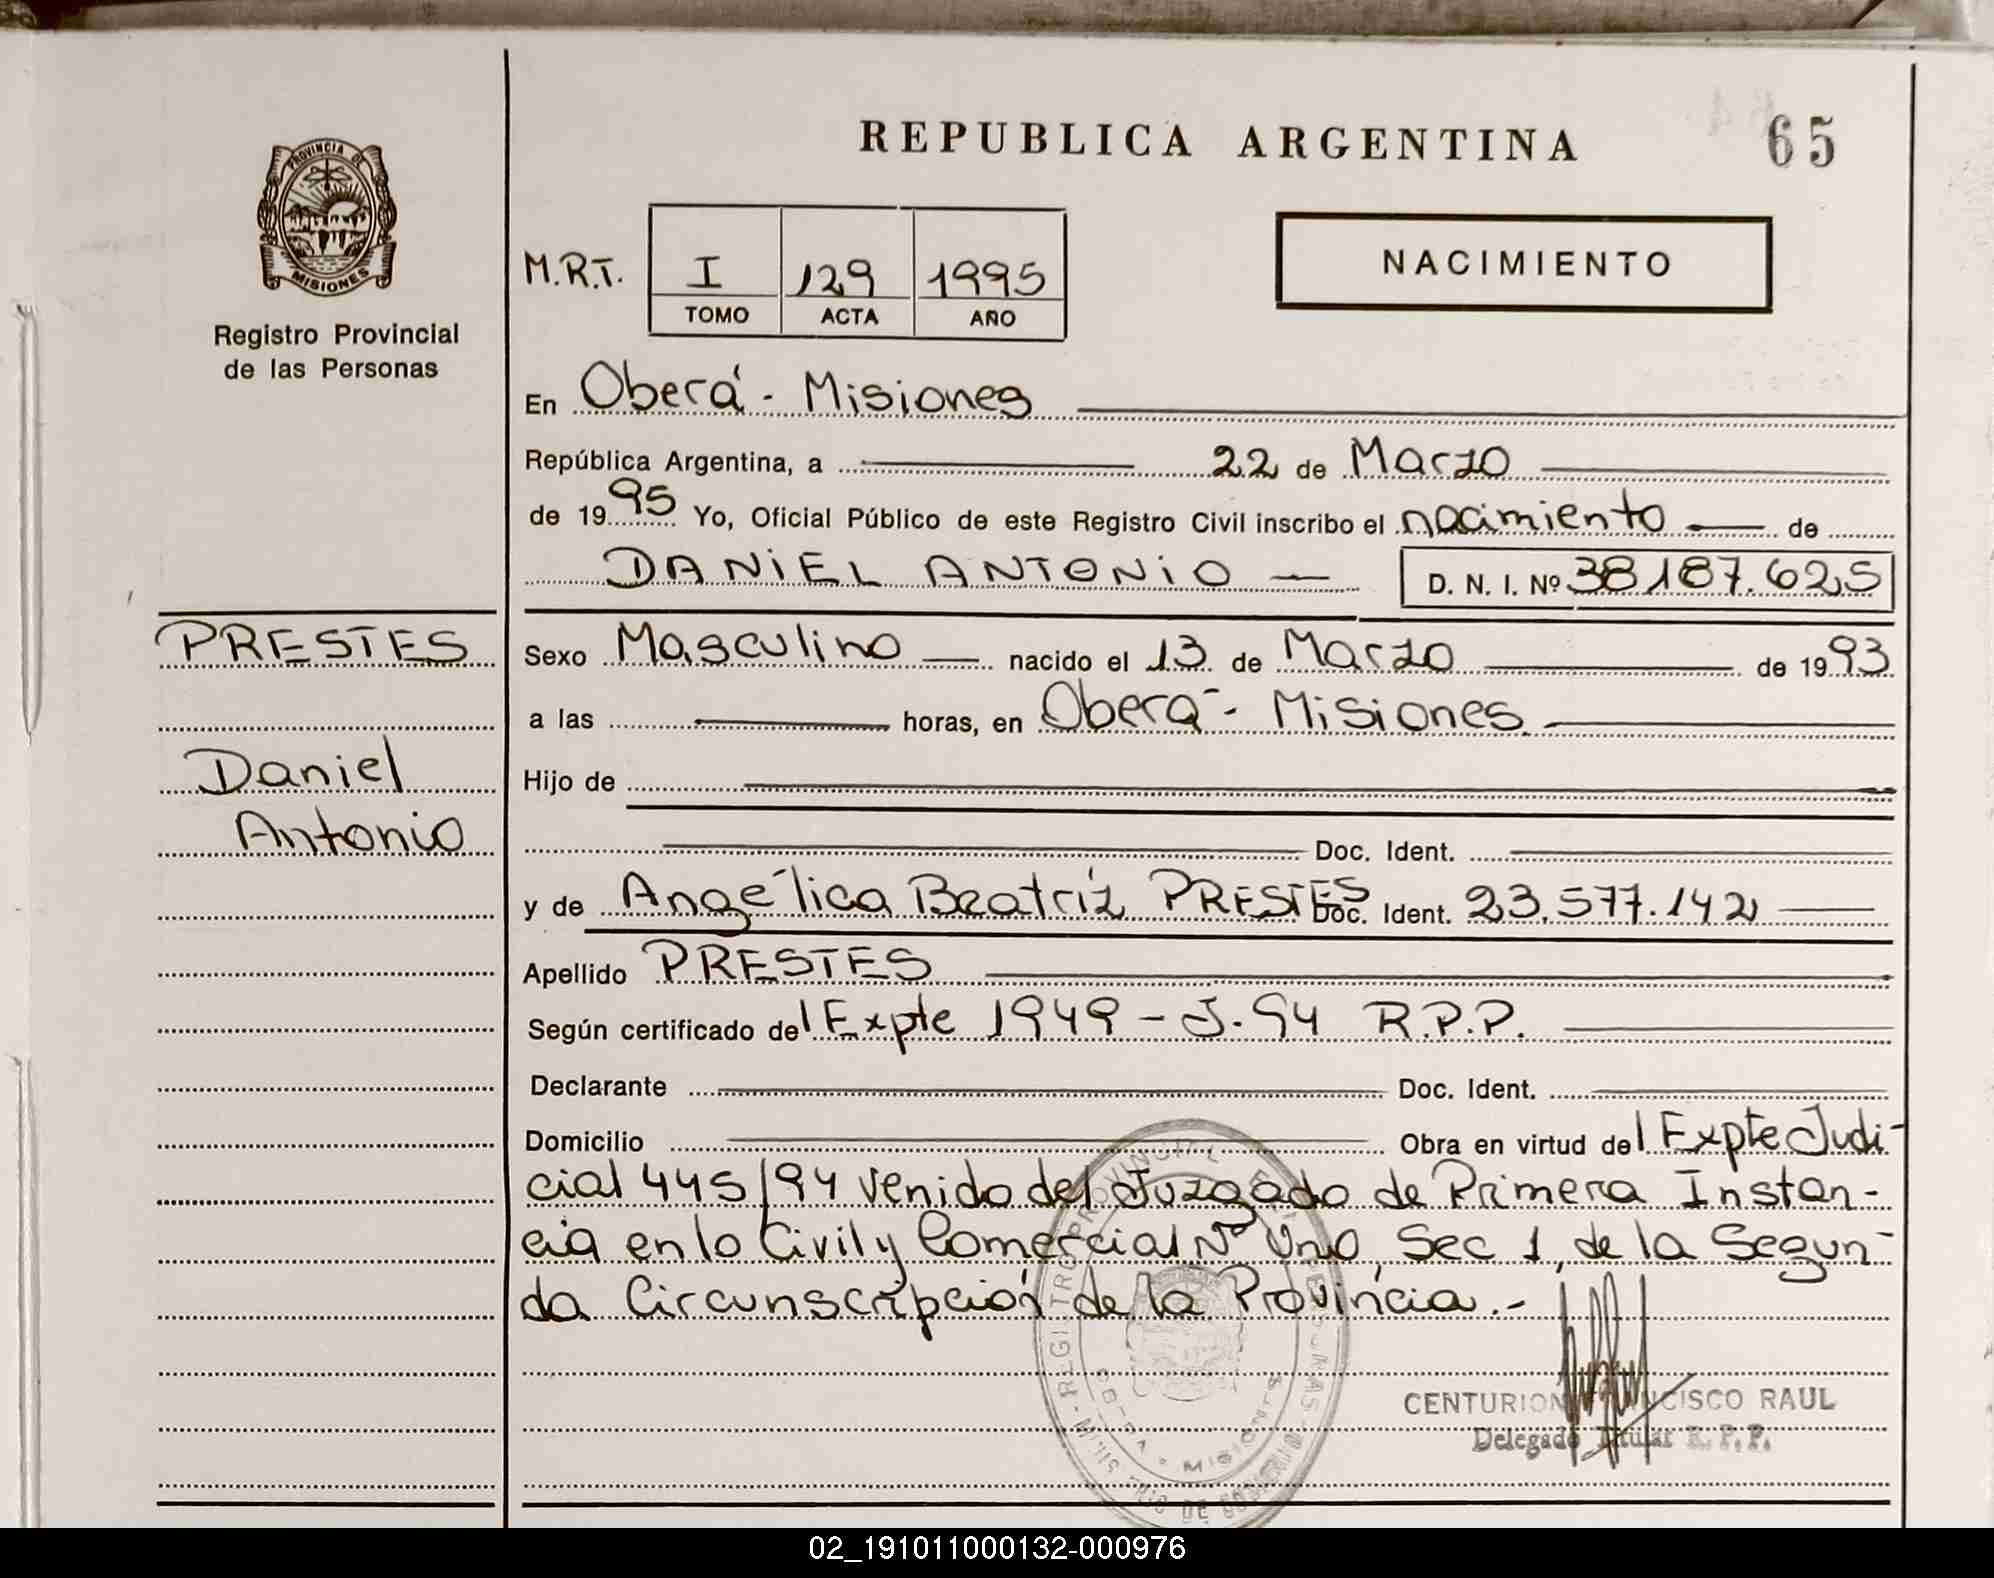 REPUBLICA ARGENTINA
65
PROVINCIA DE
MISIONES
Registro Provincial
de las Personas
M.R.T.
I 129 1995
TOMO ACTA AÑO
NACIMIENTO
En Oberá - Misiones
República Argentina, a 22 de Marzo
de 1995 Yo, Oficial Público de este Registro Civil inscribo el nacimiento de
DANIEL ANTONIO D. N. I. Nº 38187.625
PRESTES
Daniel
Antonio
Sexo Masculino nacido el 13 de Marzo de 1993
a las horas, en Oberá - Misiones.
Hijo de
Doc. Ident.
y de Angélica Beatriz PRESTES Doc. Ident. 23.577.142
Apellido PRESTES
Según certificado del Expte 1949 - J-94 R.P.P.
Declarante Doc. Ident.
Domicilio Obra en virtud del Expte Judi-
cial 445/94 venido del Juzgado de Primera Instan-
cia en lo Civil y Comercial Nº Uno, Sec 1, de la Segun-
da Circunscripción de la Provincia.-
REGISTRO PROVINCIAL
OBERA - MISIONES
CENTURION FRANCISCO RAUL
Delegado Titular R. P. P.
02_191011000132-000976